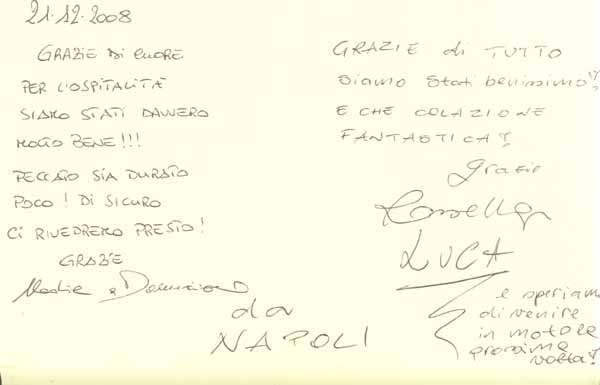 21.12.2008
GRAZIE DI CUORE
PER L'OSPITALITÀ
SIAMO STATI DAVVERO
MOLTO BENE!!!
PECCATO SIA DURATO
POCO! DI SICURO
CI RIVEDREMO PRESTO!
GRAZIE
GRAZIE di TUTTO
Siamo stati benissimo!!
E CHE COLAZIONE
FANTASTICA!
Grazie
Rossella
LUCA
da
NAPOLI
e speriamo
di venire
in moto la
prossima
volta!!